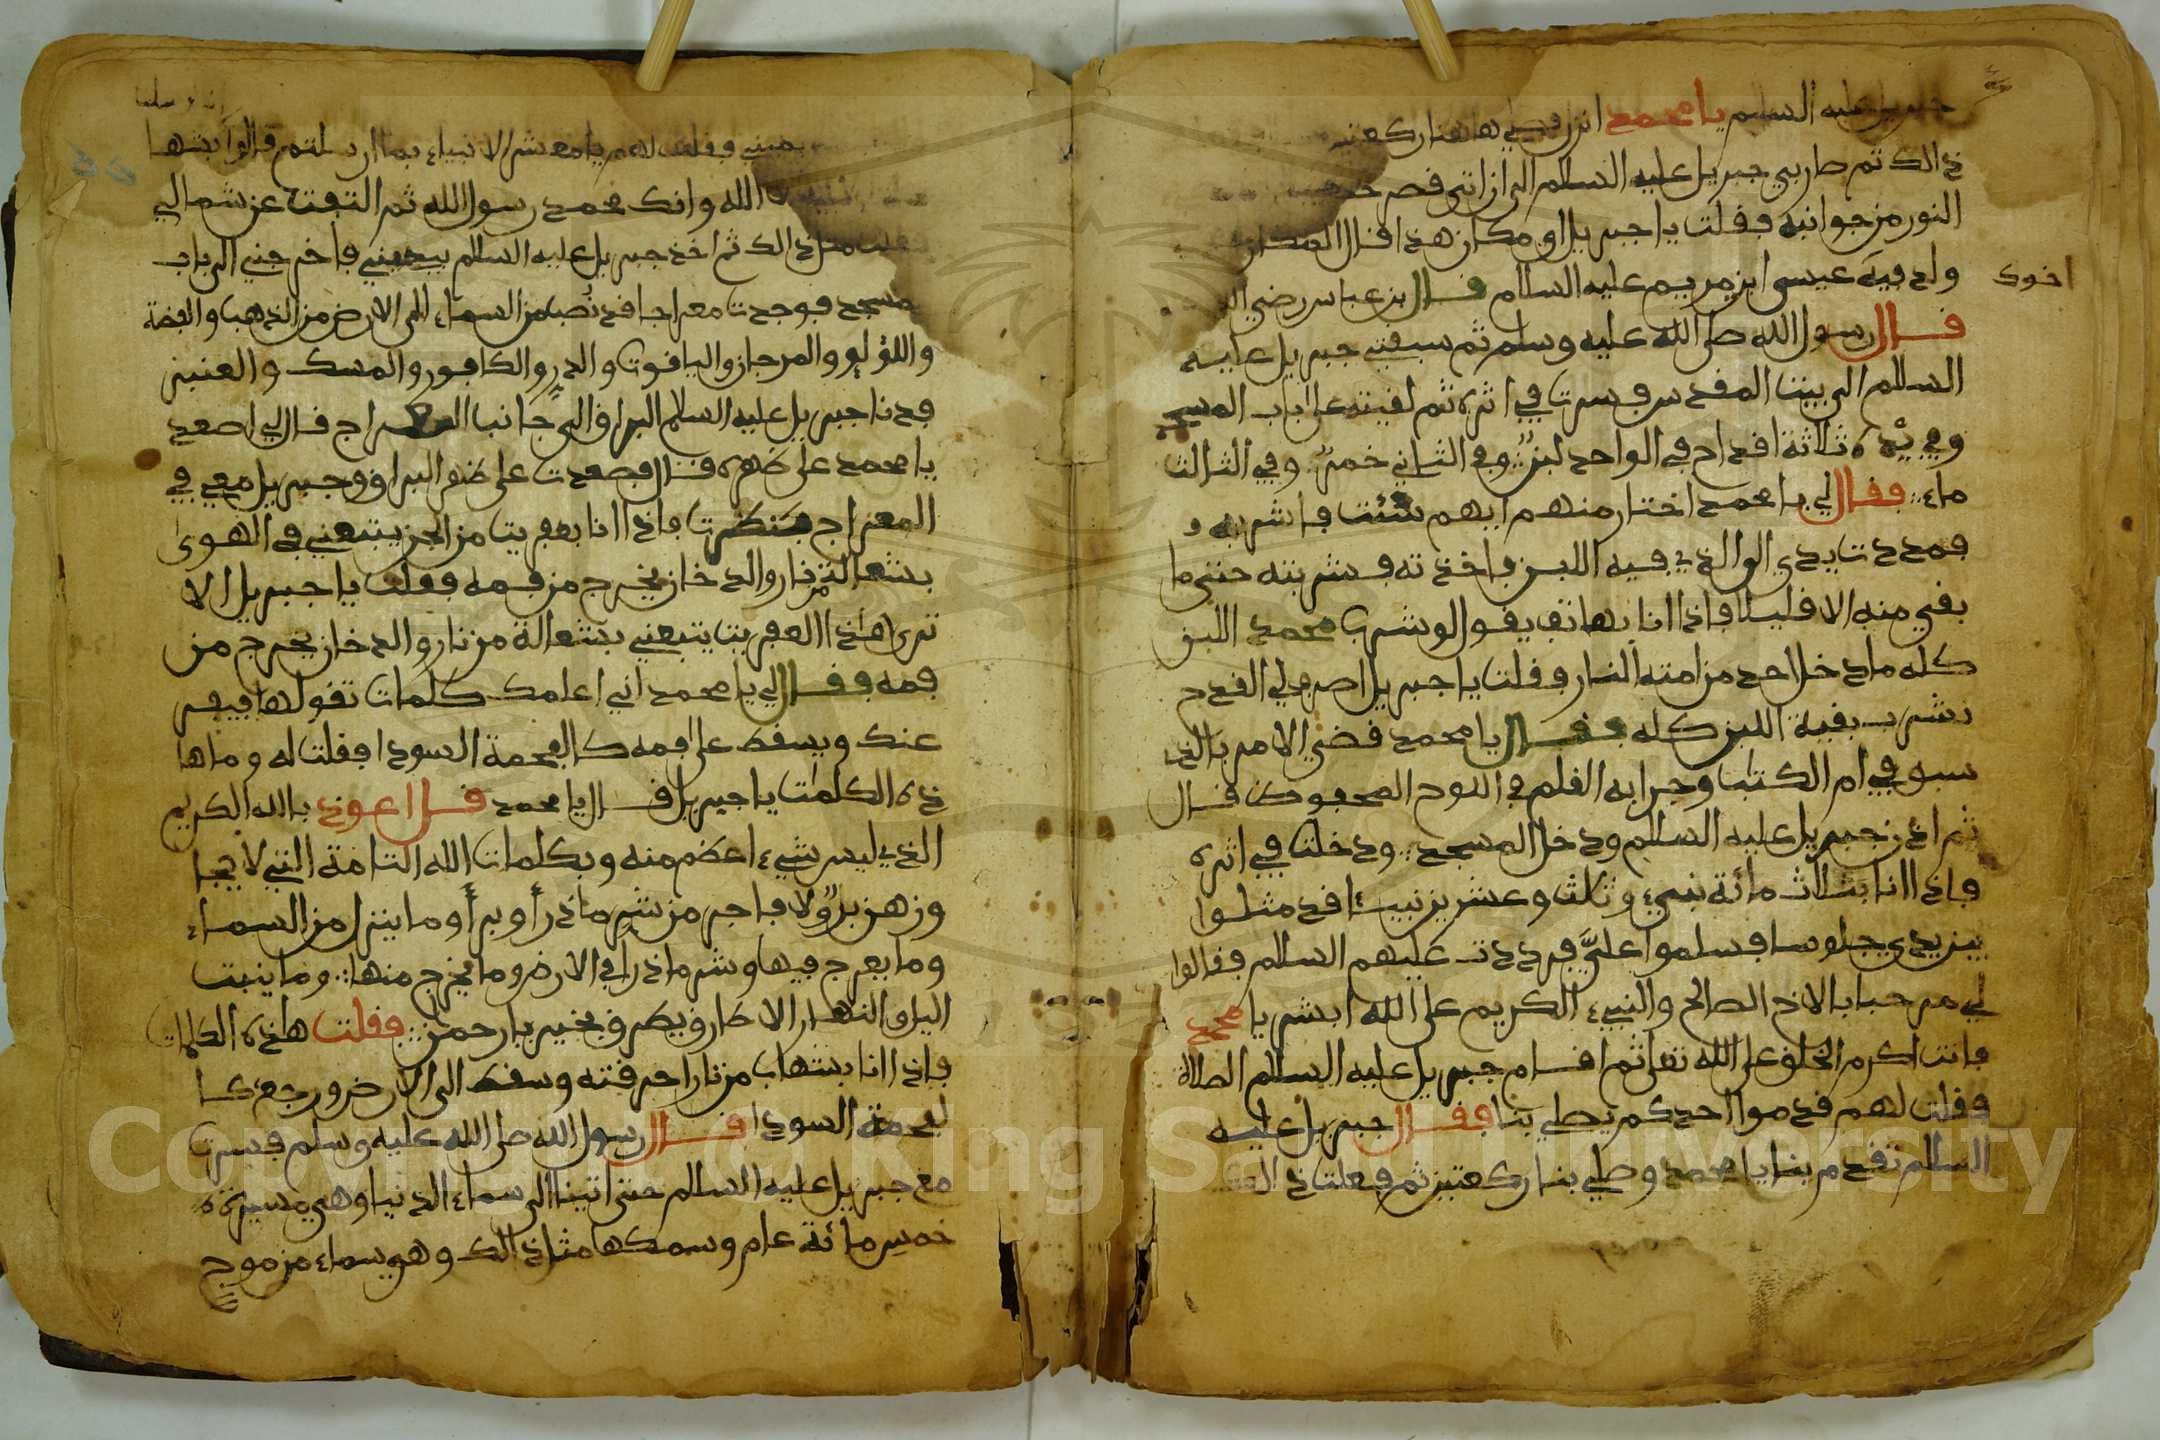 جبريل عليه السلم يا محمد انزل فصلي هاهنا ركعتين
ذالك ثم طار بي جبريل عليه السلم الى ان اتى قصر
النور من جوانبه فقلت يا جبريل اي مكان هذا قال المكان
ولد فيه عيسى ابن مريم عليه السلام قال بن عباس رضي
اخوك
قال رسول الله صلى الله عليه وسلم ثم سبقني جبريل عليه
السلام الى بيت المقدس فسرت في اثره ثم لقيته على باب المسجد
وفي يده ثلاثة اقداح في الواحد لبن وفي الثاني خمر وفي الثالث
ماء فقال لي يا محمد اختار منهم ايهم شئت فاشربه و
فمددت يدي الى الذي فيه اللبن فاخذته فشربته حتى ما
بقي منه الا قليلا فاذا انا بهاتف يقول لو شرب محمد اللبن
كله ما دخل احد من امته النار فقلت يا جبريل اصرف لي القدح
نشرب بقية اللبن كله فقال يا محمد قضي الامر بالذي
سبق في ام الكتب وجرا به القلم في اللوح المحفوظ قال
ثم اذن جبريل عليه السلم ودخل المسجد ودخلت في اثره
فاذا انا بثلاث مائة نبيء وثلث وعشرين نبيا قد مثلوا
بين يدي جلوسا فسلموا علي فرددت عليهم السلم فقالوا
لي مرحبا بالاخ الصالح والنبيء الكريم على الله ابشر يا محمد
فانت اكرم الخلق على الله تعلى ثم اقام جبريل عليه السلم الصلاة
فقلت لهم قدموا احدكم يصلي بنا فقال جبريل عليه
السلم تقدم بنا يا محمد وصلي بنا ركعتين ثم فعلت ذالك
يميني وقلت لهم يا معشر الانبياء بما ارسلتم قالوا بشها
الله وانك محمد رسول الله ثم التفت عن شمالي
فقلت مثل ذالك ثم اخذ جبريل عليه السلم بيميني فاخرجني الى باب
المسجد فوجدت معراجا قد نصب من السماء الى الارض من الذهب والفضة
واللؤلؤ والمرجان والياقوت والدر والكافور والمسك والعنبر
فدنا جبريل عليه السلام البراق الى جانب المعراج قال لي اصعد
يا محمد على ظهره قال فصعدت على ظهر البراق وجبريل معي في
المعراج فنظرت فاذا انا بعفريت من الجن يتبعني في الهوى
بشعالة من نار والدخان يخرج من فمه فقلت يا جبريل الا
ترى هذا العفريت يتبعني بشعالة من نار والدخان يخرج من
فمه فقال لي يا محمد اني اعلمك كلمات تقولها فيفر
عنك ويسقط على فمه كالفحمة السودا فقلت له وما ها
ذه الكلمت يا جبريل قال يا محمد قل اعوذ بالله الكريم
الذي ليس شيء اعظم منه وبكلمات الله التامة التي لا يجا
وزهن بر ولا فاجر من شر ما ذرأ وبرأ وما ينزل من السماء
وما يعرج فيها وشر ما ذرأ في الارض وما يخرج منها وما ينبت
اليل والنهار الا طارق يطرق بخير يا رحمن فقلت هذه الكلمات
فاذا انا بشهاب من نار احرقته وسقط الى الارض ورجع كا
لفحمة السودا قال رسول الله صلى الله عليه وسلم فسرت
مع جبريل عليه السلم حتى اتينا الى سماء الدنيا وهي مسيرة
خمس مائة عام وسمكها مثل ذالك وهو سماء من موج
Copyright © King Saud University